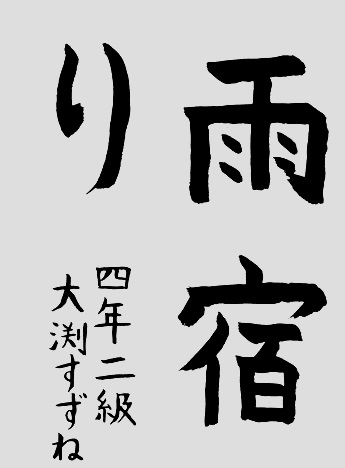 雨宿
り
四年二級
大渕すずね